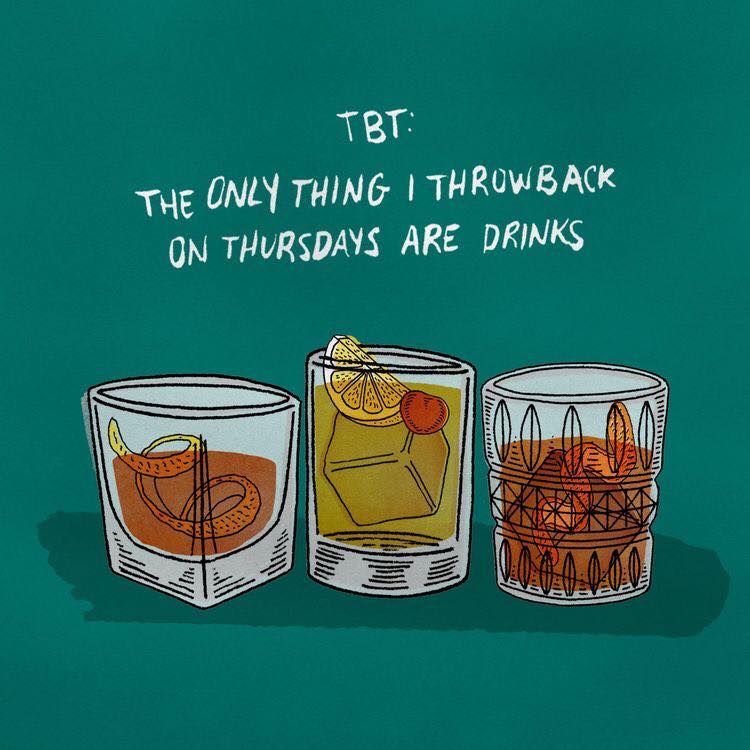 TBT:
THE ONLY THING I THROWBACK
ON THURSDAYS ARE DRINKS